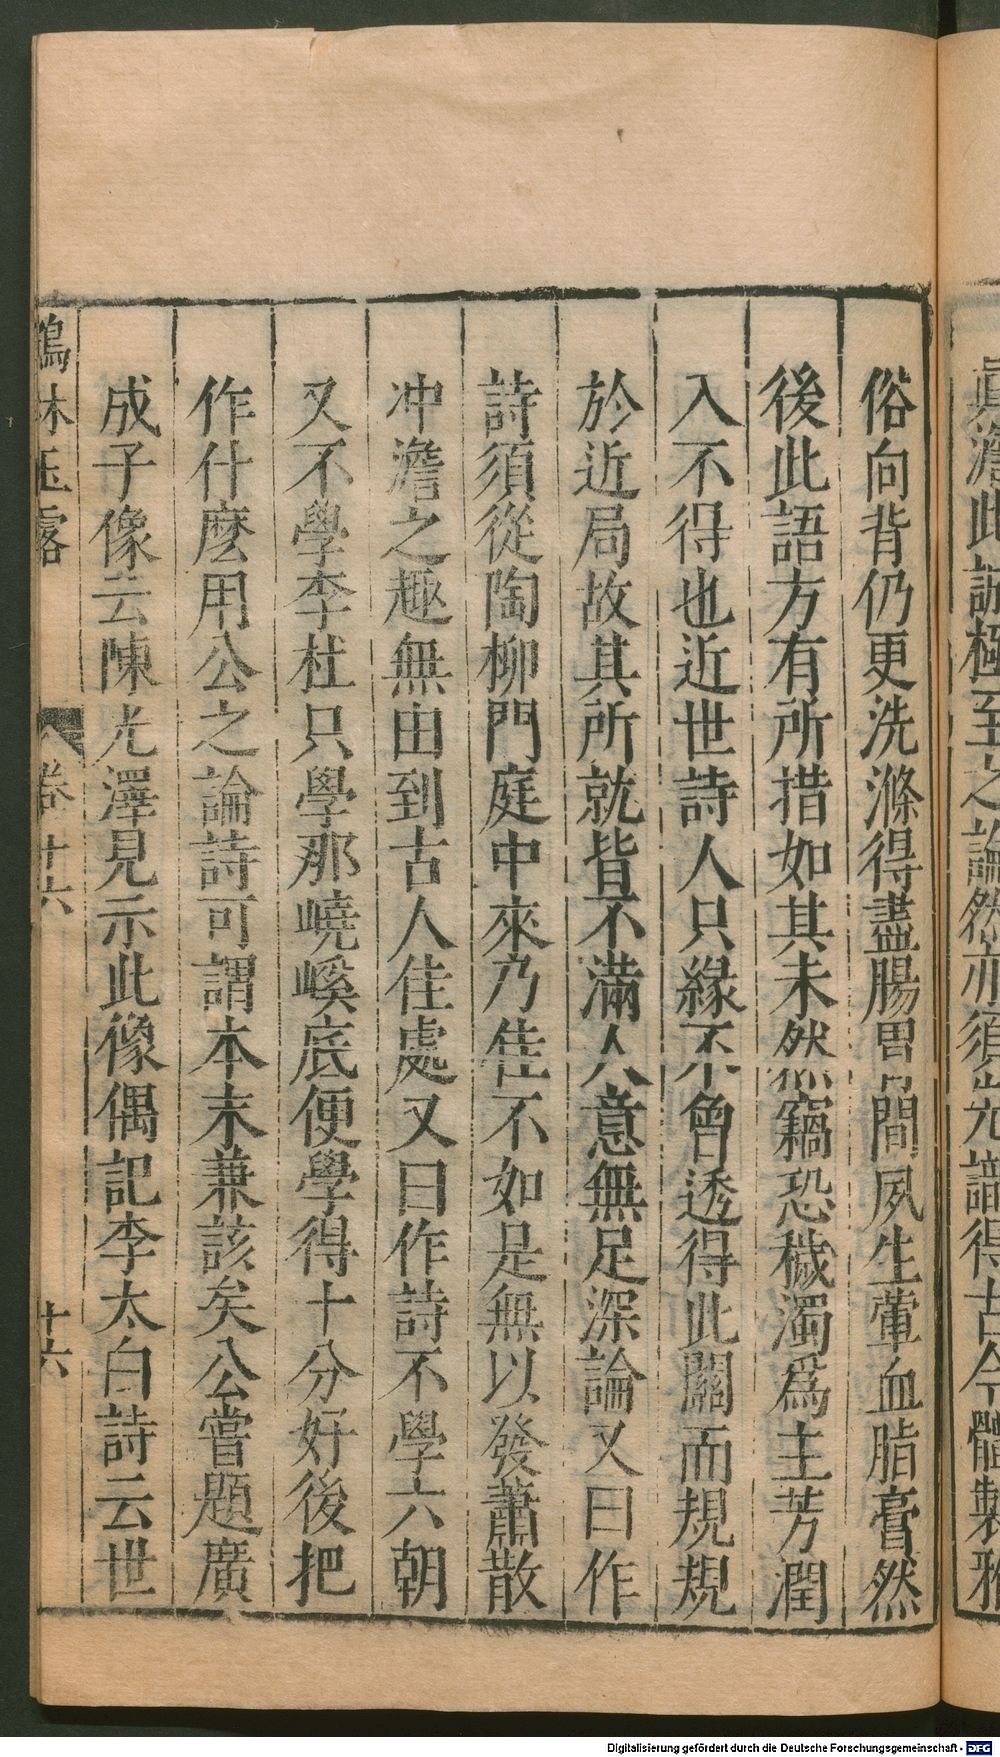 真澹此誠極至之論然亦須先識得古今體製雅
俗向背仍更洗滌得盡腸胃間夙生葷血脂膏然
後此語方有所措如其未然竊恐穢濁爲主芳潤
入不得也近世詩人只緣不曾透得此關而規規
於近局故其所就皆不滿人意無足深論又曰作
詩須從陶柳門庭中來乃佳不如是無以發蕭散
冲澹之趣無由到古人佳處又曰作詩不學六朝
又不學李杜只學那嶢崎底便學得十分好後把
作什麽用公之論詩可謂本末兼該矣公嘗題廣
成子像云陳光澤見示此像偶記李太白詩云世
鶴林玉露 卷十六 十六
Digitalisierung gefördert durch die Deutsche Forschungsgemeinschaft - DFG